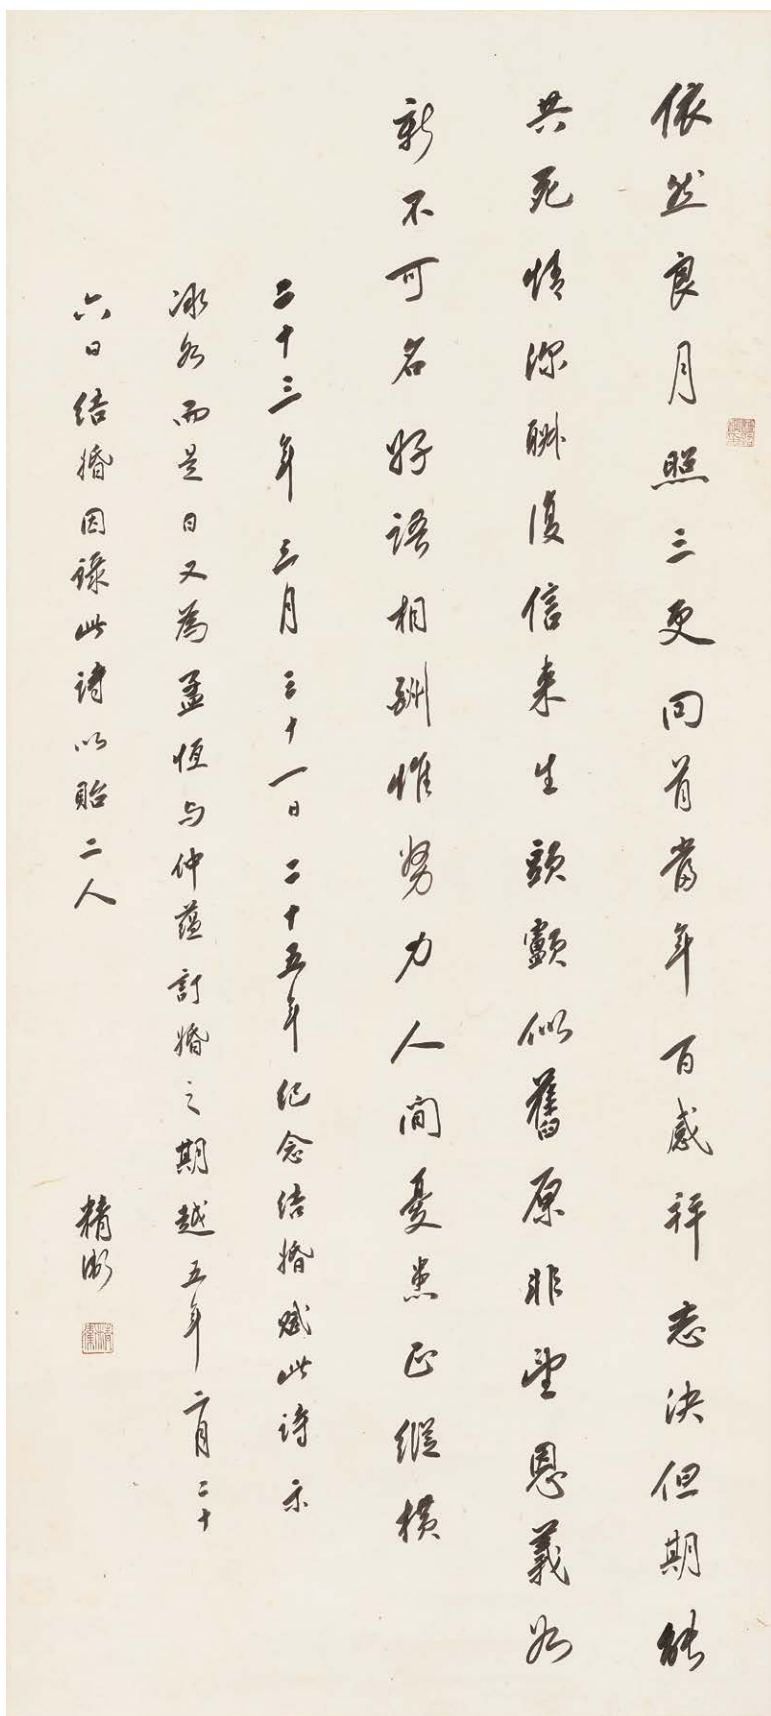 依然良月照三更回首當年百感并志決但期能
共死情深聊復信來生頭顱似舊原非望恩義如
新不可名好語相酬惟努力人間憂患正縱橫
二十三年三月三十一日二十五年紀念結婚賦此詩示
冰如而是日又為孟恆與仲蘊訂婚之期越五年二月二十
六日結婚因錄此詩以貽二人
精衛